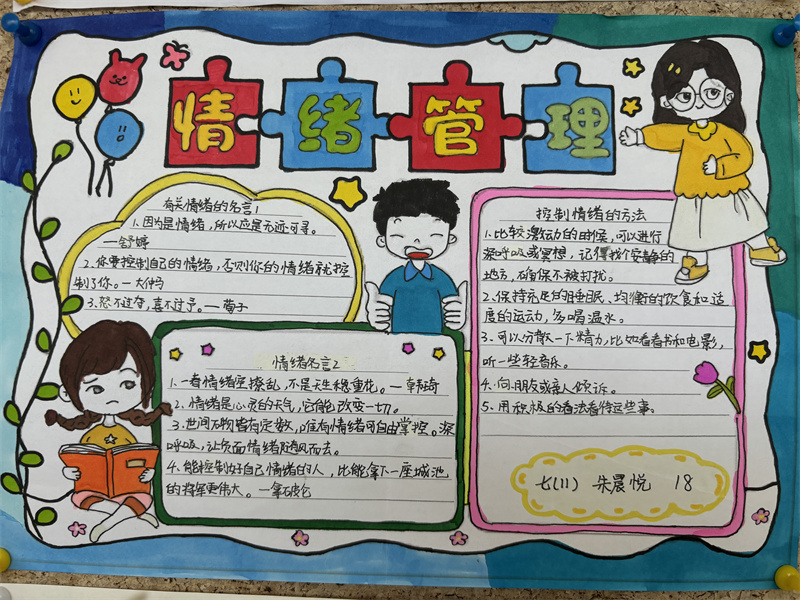 情绪管理
有关情绪的名言1
1.因为是情绪，所以应是无迹可寻。
—舒婷
2.你要控制自己的情绪，否则你的情绪就控
制了你。—大仲马
3.怒不过夺，喜不过予。—荀子
情绪名言2
1.一春情绪空撩乱，不是天生稳重花。—韩琦
2.情绪是心灵的天气，它能改变一切。
3.世间万物皆有定数，唯有情绪可自由掌控。深
呼吸，让负面情绪随风而去。
4.能控制好自己情绪的人，比能拿下一座城池
的将军更伟大。—拿破仑
控制情绪的方法
1.比较激动的时候，可以进行
深呼吸或冥想，记得找个安静的
地方，确保不被打扰。
2.保持充足的睡眠、均衡的饮食和适
度的运动，多喝温水。
3.可以分散一下精力，比如看看书和电影，
听一些轻音乐。
4.向朋友或亲人倾诉。
5.用积极的看法看待这些事。
七(11) 朱晨悦 18